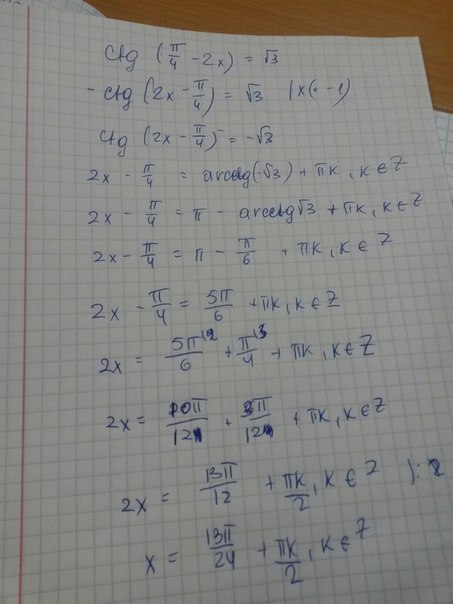 ctg (π/4 - 2x) = √3
- ctg (2x - π/4) = √3 |x(· -1)
ctg (2x - π/4) = -√3
2x - π/4 = arcctg(-√3) + πk, k∈Z
2x - π/4 = π - arcctg√3 + πk, k∈Z
2x - π/4 = π - π/6 + πk, k∈Z
2x - π/4 = 5π/6 + πk, k∈Z
2x = 5π/6 + π/4 + πk, k∈Z
2x = 10π/12 + 3π/12 + πk, k∈Z
2x = 13π/12 + πk/2, k∈Z ): 2
x = 13π/24 + πk/2, k∈Z